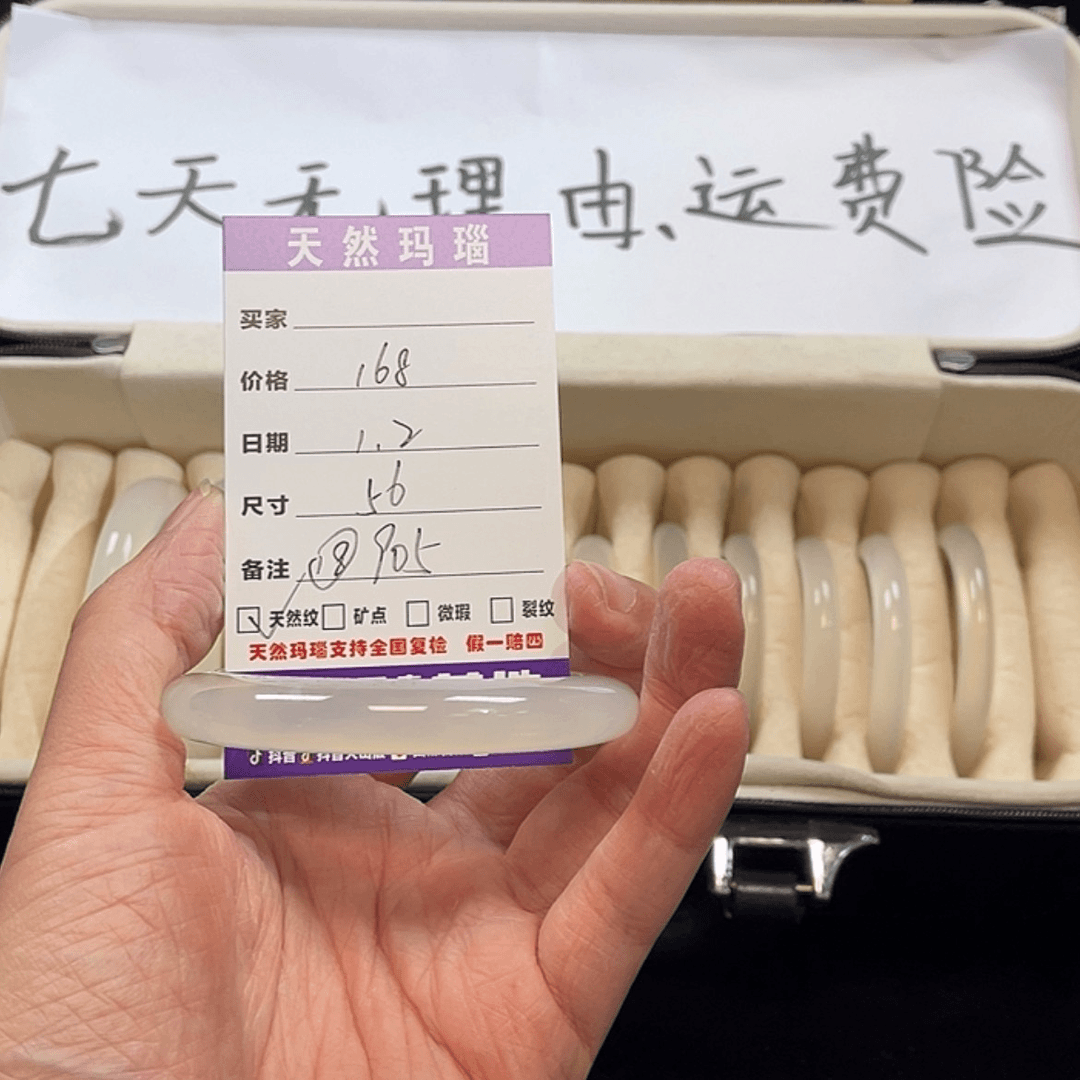 七天无理由、运费险
天然玛瑙
买家
价格 168
日期 1.2
尺寸 56
备注 18 905
天然纹 矿点 微瑕 裂纹
天然玛瑙支持全国复检 假一赔四
抖音